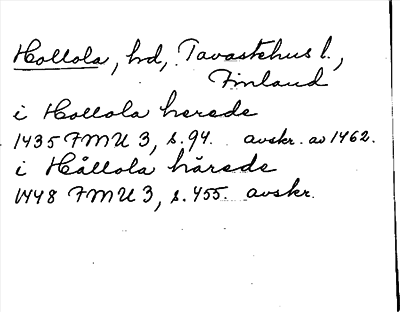 Hollola, hd, Tavastehus l.,
Finland
i Hollola herede
1435 FMU 3, s. 94. avskr. av 1462.
i Hållola hårede
1448 FMU 3, s. 455. avskr.